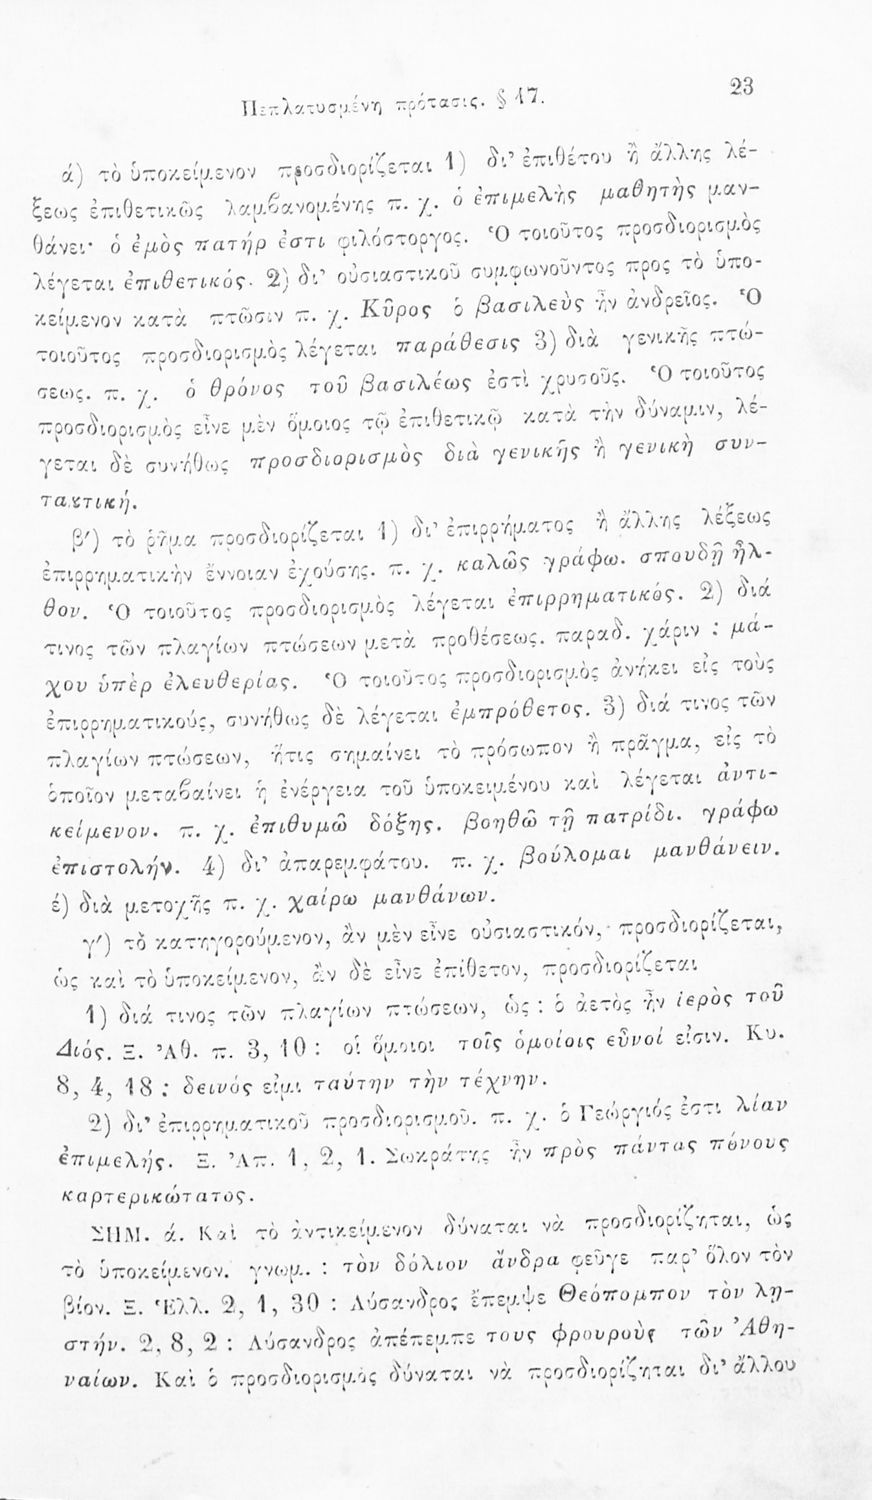 Πεπλατυσμένη πρότασις. § 17.
23
ά) τὸ ὑποκείμενον προσδιορίζεται 1) δι' ἐπιθέτου ἢ ἄλλης λέ-
ξεως ἐπιθετικῶς λαμβανομένης π. χ. ὁ ἐπιμελὴς μαθητὴς μαν-
θάνει· ὁ ἐμὸς πατήρ ἐστι φιλόστοργος. Ὁ τοιοῦτος προσδιορισμὸς
λέγεται ἐπιθετικός. 2) δι' οὐσιαστικοῦ συμφωνοῦντος προς τὸ ὑπο-
κείμενον κατὰ πτῶσιν π. χ. Κῦρος ὁ βασιλεὺς ἦν ἀνδρεῖος. Ὁ
τοιοῦτος προσδιορισμὸς λέγεται παράθεσις 3) διὰ γενικῆς πτώ-
σεως. π. χ. ὁ θρόνος τοῦ βασιλέως ἐστὶ χρυσοῦς. Ὁ τοιοῦτος
προσδιορισμὸς εἶνε μὲν ὅμοιος τῷ ἐπιθετικῷ κατὰ τὴν δύναμιν, λέ-
γεται δὲ συνήθως προσδιορισμὸς διὰ γενικῆς ἢ γενικὴ συν-
τακτική.
β') τὸ ῥῆμα προσδιορίζεται 1) δι' ἐπιρρήματος ἢ ἄλλης λέξεως
ἐπιρρηματικὴν ἔννοιαν ἐχούσης. π. χ. καλῶς γράφω. σπουδῇ ἦλ-
θον. Ὁ τοιοῦτος προσδιορισμὸς λέγεται ἐπιρρηματικός. 2) διά
τινος τῶν πλαγίων πτώσεων μετὰ προθέσεως. παραδ. χάριν : μά-
χου ὑπὲρ ἐλευθερίας. Ὁ τοιοῦτος προσδιορισμὸς ἀνήκει εἰς τοὺς
ἐπιρρηματικούς, συνήθως δὲ λέγεται ἐμπρόθετος. 3) διά τινος τῶν
πλαγίων πτώσεων, ἥτις σημαίνει τὸ πρόσωπον ἢ πρᾶγμα, εἰς τὸ
ὁποῖον μεταβαίνει ἡ ἐνέργεια τοῦ ὑποκειμένου καὶ λέγεται ἀντι-
κείμενον. π. χ. ἐπιθυμῶ δόξης. βοηθῶ τῇ πατρίδι. γράφω
ἐπιστολήν. 4) δι' ἀπαρεμφάτου. π. χ. βούλομαι μανθάνειν.
έ) διὰ μετοχῆς π. χ. χαίρω μανθάνων.
γ') τὸ κατηγορούμενον, ἂν μὲν εἶνε οὐσιαστικόν, προσδιορίζεται,
ὡς καὶ τὸ ὑποκείμενον, ἂν δὲ εἶνε ἐπίθετον, προσδιορίζεται
1) διά τινος τῶν πλαγίων πτώσεων, ὡς : ὁ ἀετὸς ἦν ἱερὸς τοῦ
Διός. Ξ. Ἀθ. π. 3, 10 : οἱ ὅμοιοι τοῖς ὁμοίοις εὖνοί εἰσιν. Κυ.
8, 4, 18 : δεινός εἰμι ταύτην τὴν τέχνην.
2) δι' ἐπιρρηματικοῦ προσδιορισμοῦ. π. χ. ὁ Γεώργιός ἐστι λίαν
ἐπιμελής. Ξ. Ἀπ. 1, 2, 1. Σωκράτης ἦν πρὸς πάντας πόνους
καρτερικώτατος.
ΣΗΜ. ά. Καὶ τὸ ἀντικείμενον δύναται νὰ προσδιορίζηται, ὡς
τὸ ὑποκείμενον. γνωμ. : τὸν δόλιον ἄνδρα φεῦγε παρ' ὅλον τὸν
βίον. Ξ. Ἑλλ. 2, 1, 30 : Λύσανδρος ἔπεμψε Θεόπομπον τὸν λῃ-
στήν. 2, 8, 2 : Λύσανδρος ἀπέπεμπε τους φρουροὺς τῶν Ἀθη-
ναίων. Καὶ ὁ προσδιορισμὸς δύναται νὰ προσδιορίζηται δι' ἄλλου